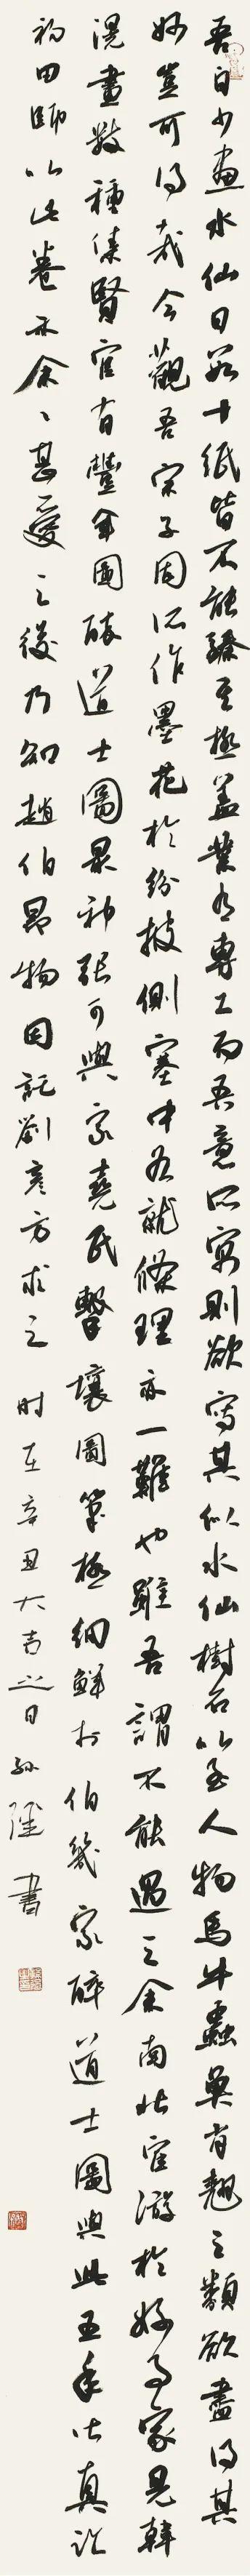 吾自少画水仙日数十纸皆不能臻其极盖业有专工而吾意所寓则欲写其似水仙树石以至人物馬牛蟲魚肖翹之類欲盡得其
妙豈可得哉今觀吾宗子固所作墨花於紛披側塞中各就條理亦一難也雖吾謂不能過之余南北宦游於好事家見韓
滉畫數種集賢官有豐年圖醉道士圖最神張可與家堯民擊壤圖筆極細鮮于伯幾家醉道士圖與此五牛皆真跡
初田師以此卷示余余甚愛之後乃知趙伯昂物因託劉彥方求之 时在辛丑大吉之日 孙 書